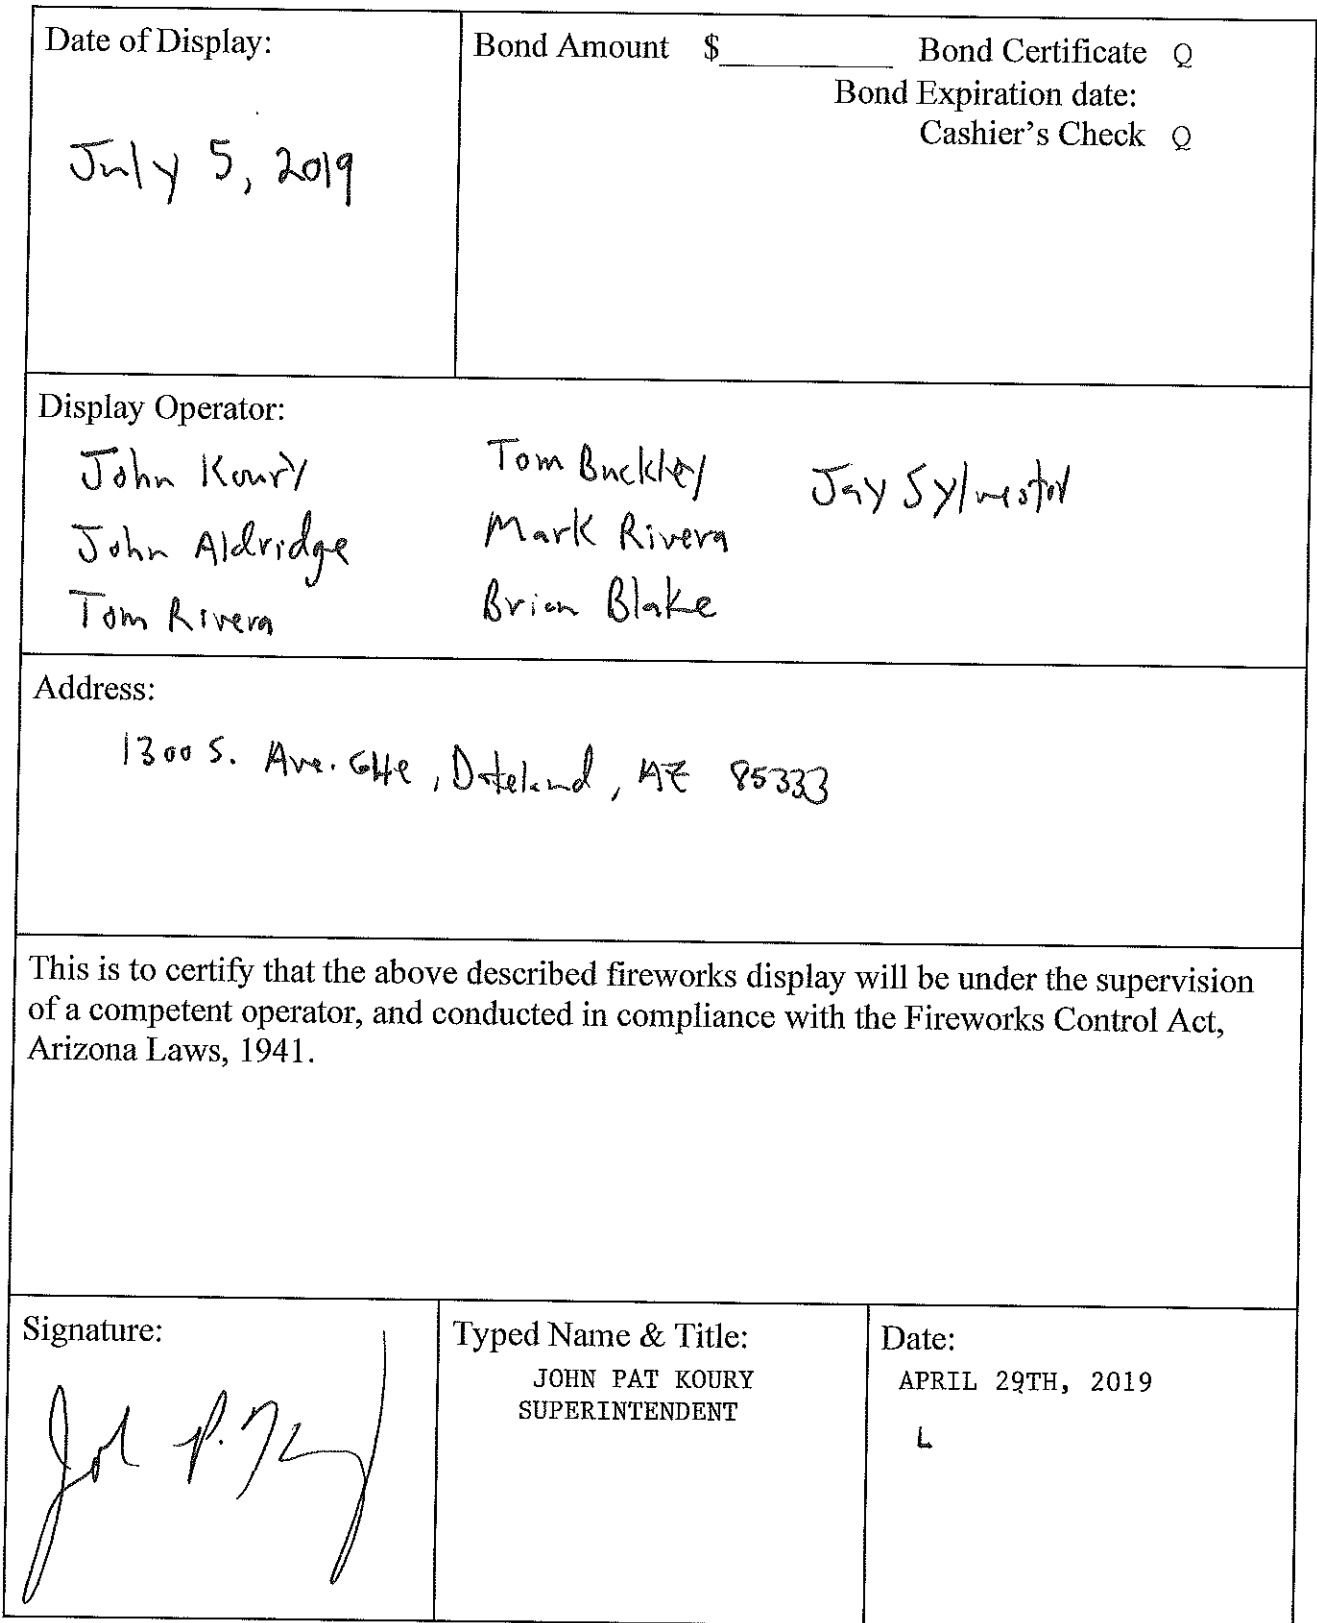 Date of Display:
July 5, 2019
Bond Amount $__________ Bond Certificate Q
Bond Expiration date:
Cashier's Check Q
Display Operator:
John Koury
John Aldridge
Tom Rivera
Tom Buckley
Mark Rivera
Brian Blake
Jay Sylvestor
Address:
1300 S. Ave. 64e, Dateland, AZ 85333
This is to certify that the above described fireworks display will be under the supervision
of a competent operator, and conducted in compliance with the Fireworks Control Act,
Arizona Laws, 1941.
Signature:
Typed Name & Title:
JOHN PAT KOURY
SUPERINTENDENT
Date:
APRIL 29TH, 2019